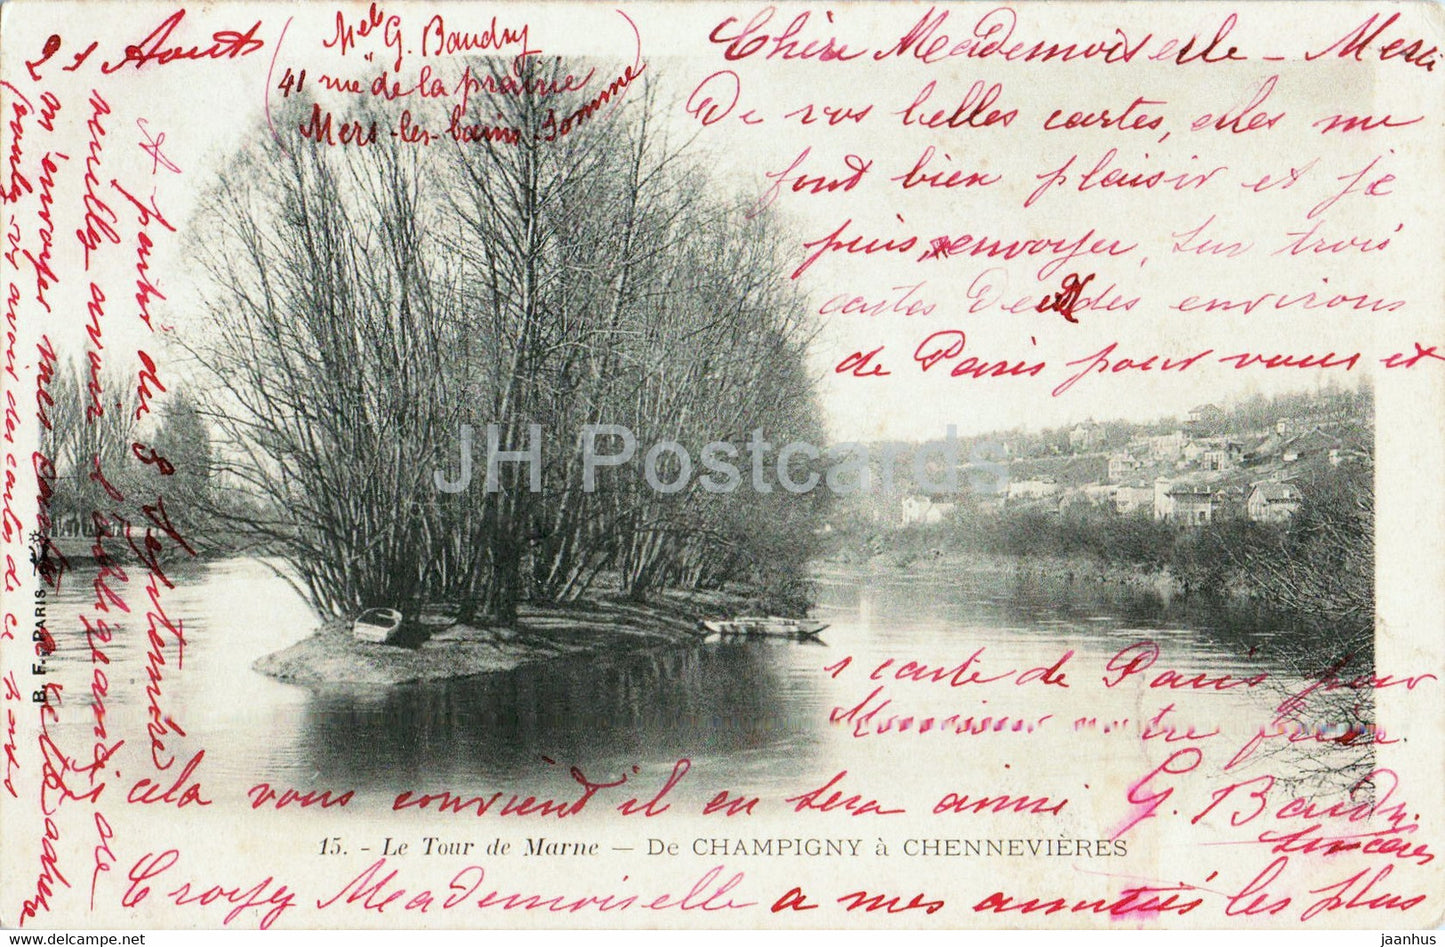 21 Aout
(Mel G. Baudry
41 rue de la prairie
Mers-les-bains. Somme)
Chère Meademoiselle - Merci
De vos belles cartes, elles me
font bien plaisir et je
puis, envoyer, sur trois
cartes Deux des environs
de Paris pour vous et
1 carte de Paris pour
Monsieur votre frère.
cela vous convient il en sera ainsi
Croyez Meademoiselle a mes amitiés les plus
sincères
G. Baudry.
A partir du 8 Septembre
veuillez avoir l'obligeance de
m'envoyer mes cartes
voulez-vous avoir des cartes de ce pays
B. F. PARIS
15. - Le Tour de Marne — De CHAMPIGNY à CHENNEVIÈRES
JH Postcards
hip_emp_marker jaanhus